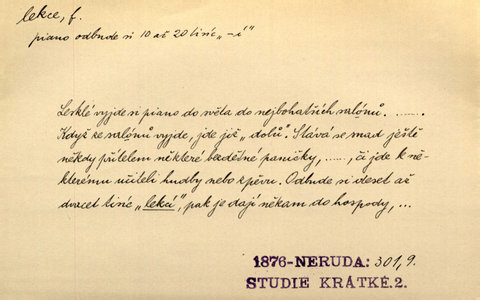 lekce, f.
piano odbude si 10 až 20 tisíc „-í"
Lesklé vyjde si piano do světa do nejbohatších salónů. .......
Když ze salónů vyjde, jde již „dolů". Stává se snad ještě
někdy přítelem některé bezděčné paničky, ......, či jde k ně-
kterému učiteli hudby nebo zpěvu. Odbude si deset až
dvacet tisíc „lekcí", pak je dají někam do hospody, ...
1876-NERUDA: 301,9.
STUDIE KRÁTKÉ.2.